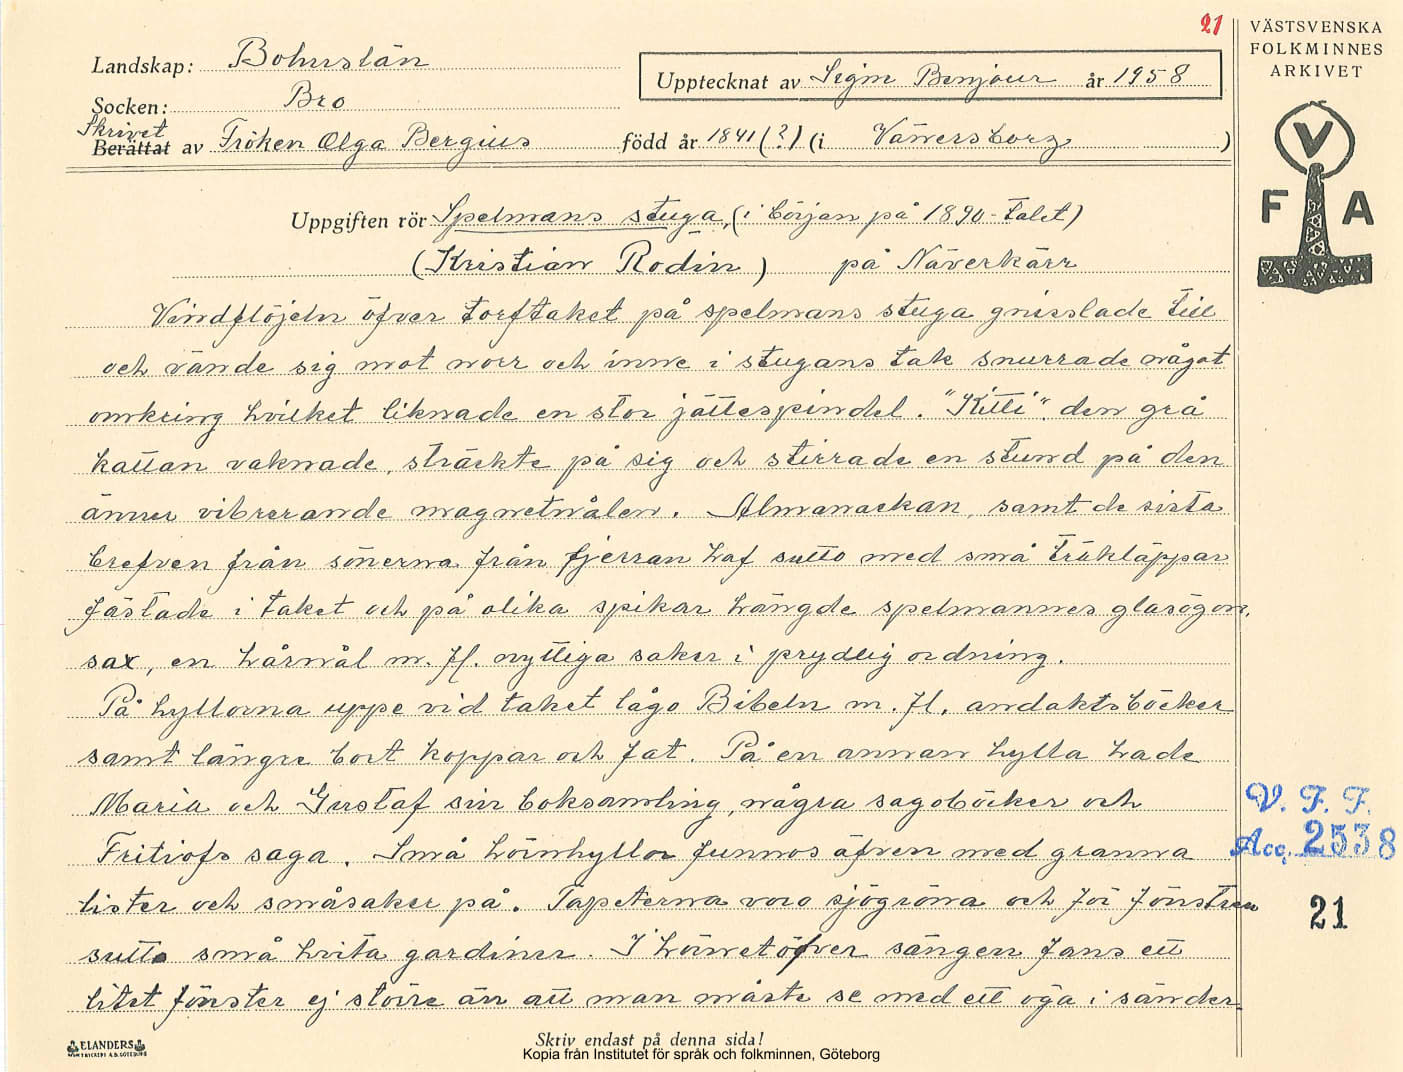 21
VÄSTSVENSKA
FOLKMINNES
ARKIVET
Landskap: Bohuslän
Upptecknat av Sigm Benjour år 1958
Socken: Bro
Skrivet
Berättat av Fröken Olga Bergius född år 1841 (?) (i Vänersborg )
V
F A
Uppgiften rör Spelmans stuga, (i början på 1890-talet)
(Kristian Rodin) på Näverkärr
Vindflöjeln öfver torftaket på spelmans stuga gnisslade till
och vände sig mot norr och inne i stugans tak snurrade något
omkring hvilket liknade en stor jättespindel. "Kitti" den grå
kattan vaknade, sträckte på sig och stirrade en stund på den
ännu vibrerande magnetnålen. Almanackan, samt de sista
brefven från sönerna från fjerran haf sutto med små träkläppar
fästade i taket och på olika spikar hängde spelmannes glasögon,
sax, en hårnål m. fl. nyttiga saker i prydlig ordning.
På hyllorna uppe vid taket lågo Bibeln m. fl. andaktsböcker
samt längre bort koppar och fat. På en annan hylla hade
Maria och Gustaf sin boksamling, några sagoböcker och
Fritiofs saga. Små hörnhyllor funnos äfven med granna
lister och småsaker på. Tapeterna voro sjögröna och för fönstren
sutto små hvita gardiner. I hörnet öfver sängen fans ett
litet fönster ej större än att man måste se med ett öga i sänder
V. F. F.
Acc. 2538
21
ELANDERS
Skriv endast på denna sida!
Kopia från Institutet för språk och folkminnen, Göteborg